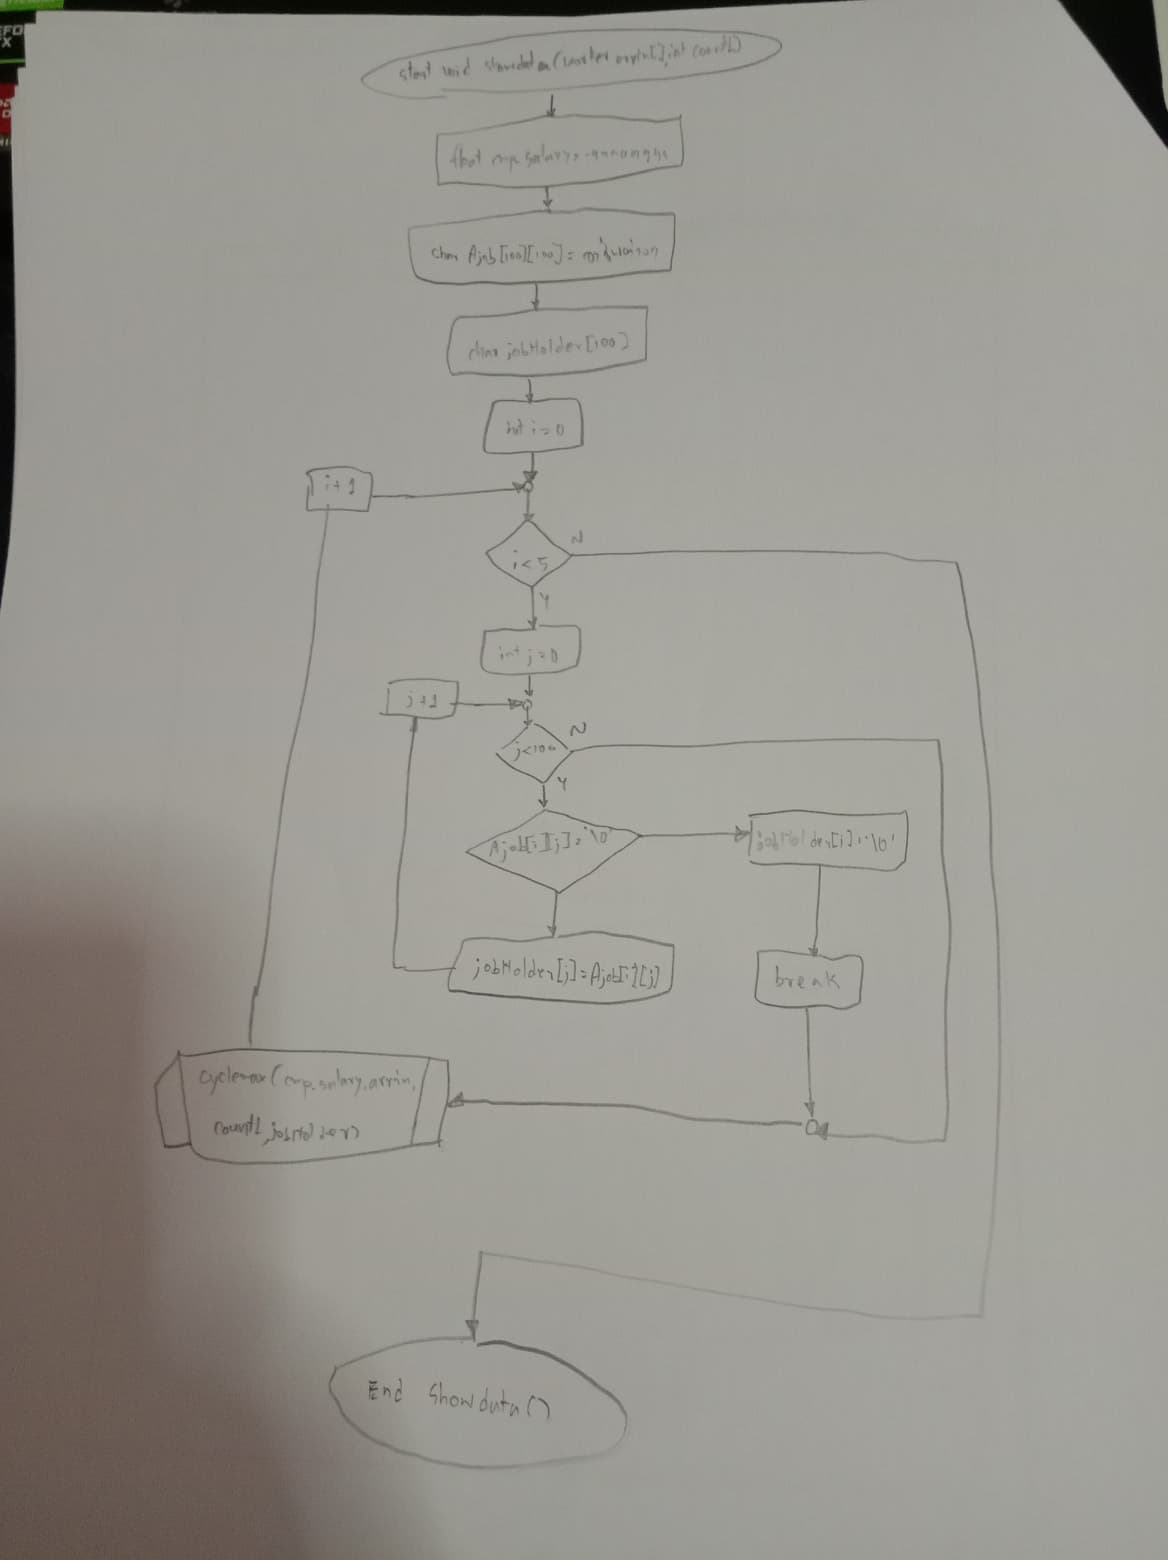 start void showdata(worker arrin[],int count1)
float emp.salary=
char Ajob[100][100]=
char jobHolder[100]
int i=0
i+1
i<5
N
Y
int j=0
j+1
j<100
N
Y
Ajob[i][j]='\0'
jobHolder[j]='\0'
jobHolder[j]=Ajob[i][j]
break
cyclemax(emp.salary,arrin,
count1,jobHolder)
End showdata()